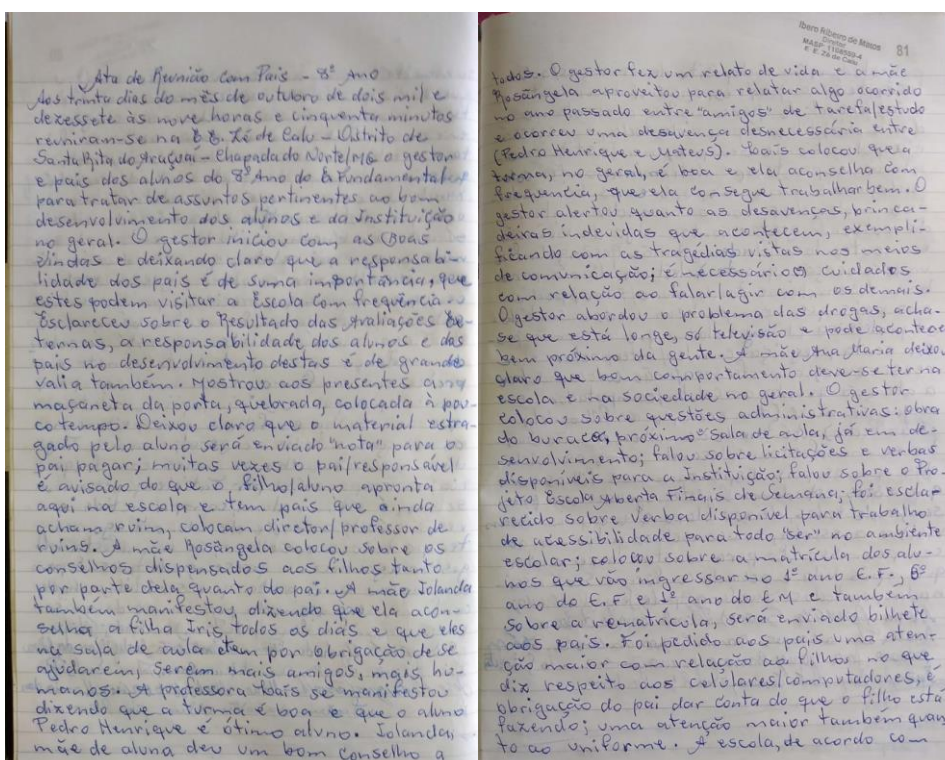 Ata de Reunião com Pais - 8º Ano
Aos trinta dias do mês de outubro de dois mil e
dezessete às nove horas e cinquenta minutos
reuniram-se na E.E. Zé de Calu - Distrito de
Santa Rita do Araçuaí - Chapada do Norte/MG o gestor
e pais dos alunos do 8º Ano do E. Fundamental
para tratar de assuntos pertinentes ao bom
desenvolvimento dos alunos e da Instituição
no geral. O gestor iniciou com as Boas
Vindas e deixando claro que a responsabi-
lidade dos pais é de suma importância, que
estes podem visitar a Escola com frequência.
Esclareceu sobre o Resultado das Avaliações Ex-
ternas, a responsabilidade dos alunos e dos
pais no desenvolvimento destas é de grande
valia também. Mostrou aos presentes a
maçaneta da porta, quebrada, colocada à pou-
co tempo. Deixou claro que o material estra-
gado pelo aluno será enviado "nota" para o
pai pagar; muitas vezes o pai/responsável
é avisado do que o filho/aluno apronta
aqui na escola e tem pais que ainda
acham ruim, colocam diretor/professor de
ruins. A mãe Rosângela colocou sobre os
conselhos dispensados aos filhos tanto
por parte dela, quanto do pai. A mãe Iolanda
também manifestou, dizendo que ela acon-
selha a filha Iris todos os dias e que eles
na sala de aula tem por obrigação de se
ajudarem, serem mais amigos, mais hu-
manos. A professora Laís se manifestou
dizendo que a turma é boa e que o aluno
Pedro Henrique é ótimo aluno. Iolanda,
mãe de aluna deu um bom conselho a
Ibero Ribeiro de Matos
Diretor
MASP
E. E. Zé de Calu
81
todos. O gestor fez um relato de vida e a mãe
Rosângela aproveitou para relatar algo ocorrido
no ano passado entre "amigos" de tarefa/estudo
e ocorreu uma desavença desnecessária entre
(Pedro Henrique e Mateus). Laís colocou que a
turma, no geral, é boa e ela aconselha com
frequencia, que ela consegue trabalhar bem. O
gestor alertou quanto as desavenças, brinca-
deiras indevidas que acontecem, exempli-
ficando com as tragédias vistas nos meios
de comunicação; é necessário cuidados
com relação ao falar/agir com os demais.
O gestor abordou o problema das drogas, acha-
se que está longe, só televisão e pode acontecer
bem próximo da gente. A mãe Ana Maria deixou
claro que bom comportamento deve-se ter na
escola e na sociedade no geral. O gestor
colocou sobre questões administrativas: obra
do buraco, próximo sala de aula, já em de-
senvolvimento; falou sobre licitações e verbas
disponíveis para a Instituição; falou sobre o Pro-
jeto Escola Aberta Finais de Semana; foi escla-
recido sobre verba disponível para trabalho
de acessibilidade para todo "ser" no ambiente
escolar; colocou sobre a matrícula dos alu-
nos que vão ingressar no 1º ano E.F., 6º
ano do E.F e 1º ano do EM e também
sobre a rematrícula, será enviado bilhete
aos pais. Foi pedido aos pais uma aten-
ção maior com relação ao filho, no que
diz respeito aos celulares/computadores, é
obrigação do pai dar conta do que o filho está
fazendo; uma atenção maior também quan-
to ao uniforme. A escola, de acordo com